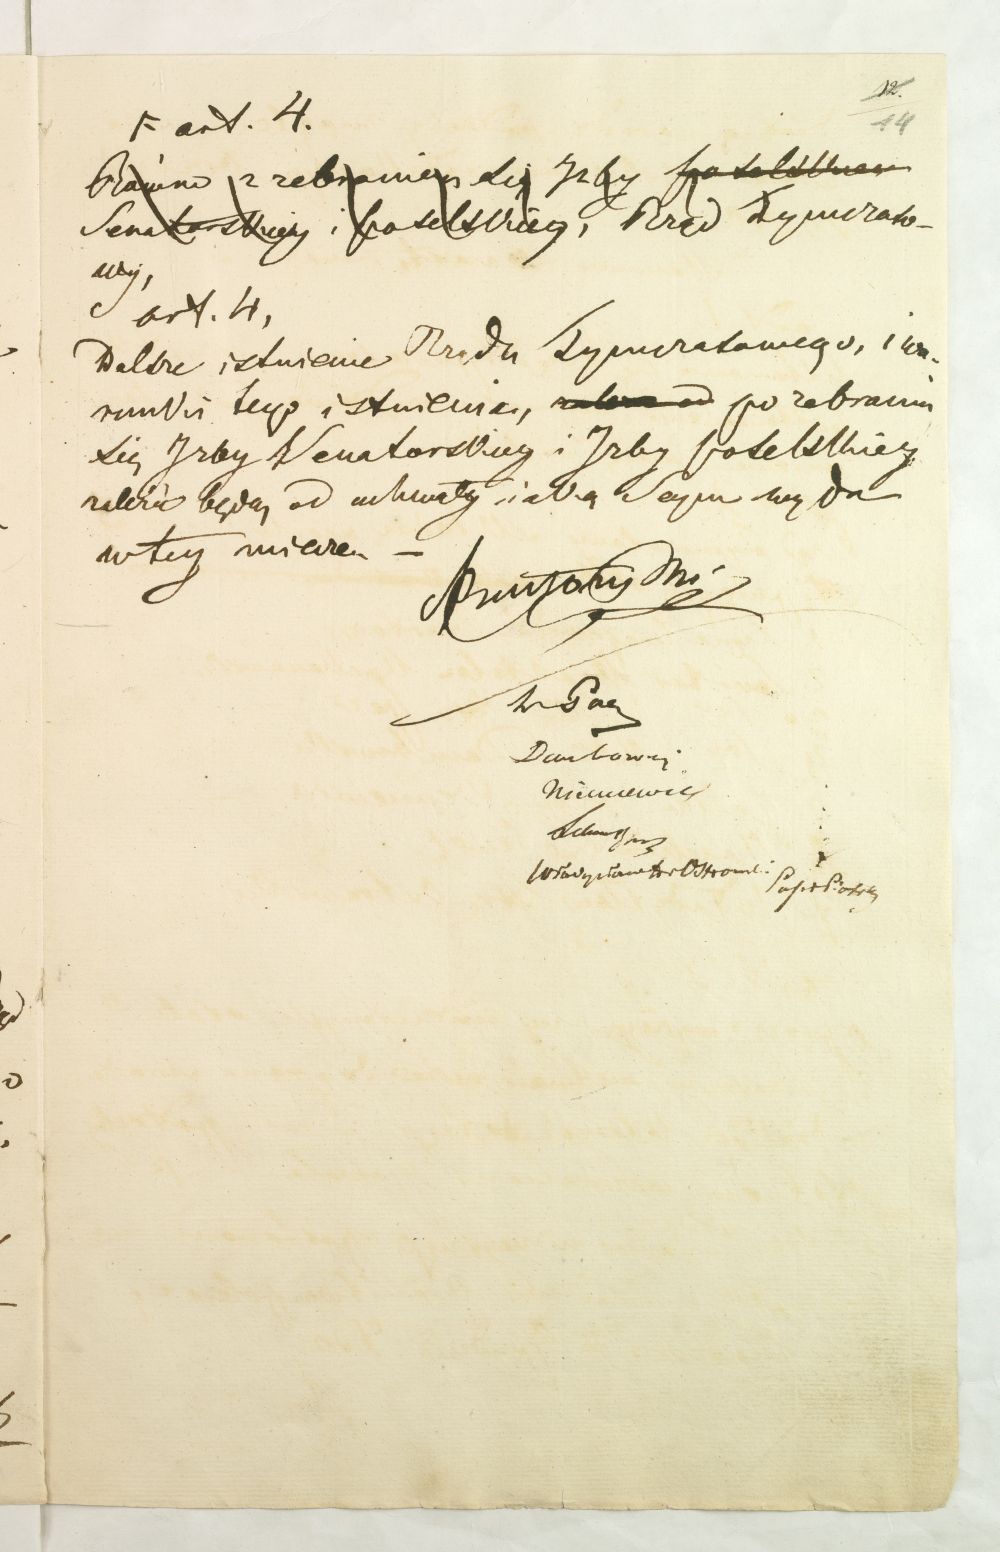 12.
14
F art. 4.
Równo z zebraniem się Izby poselskiey
Senatorskiey i poselskiey, Rząd Tymczaso-
wy,
art. 4,
Dalsze istnienie Rządu Tymczasowego, i wa-
runki tego istnienia, po zebraniu
się Izby Senatorskiey i Izby poselskiey
zależeć będą od uchwały iaką Seym wyda
w tey mierze. —
Pac
Dembowski
Niemcewicz
Władysław Hr Ostrowski